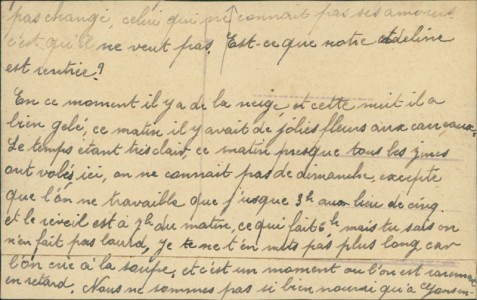 pas changé, celui qui ne connait pas ses amours
c'est qu'il ne veut pas. Est-ce que notre Adeline
est rentrée?
En ce moment il y a de la neige, et cette nuit il a
bien gelé, ce matin il y avait de jolies fleurs aux carreaux.
Le temps étant très clair, ce matin presque tous les
ont volés ici, on ne connait pas de dimanche, excepté
que l'on ne travaille que jusque 3h au lieu de cinq.
et le réveil est à 7h du matin, ce qui fait 6h mais tu sais on
n'en fait pas lourd, je ne t'en mets pas plus long car
l'on crie à la soupe, et c'est un moment ou l'on est rarement
en retard. Nous ne sommes pas si bien nourri qu'a